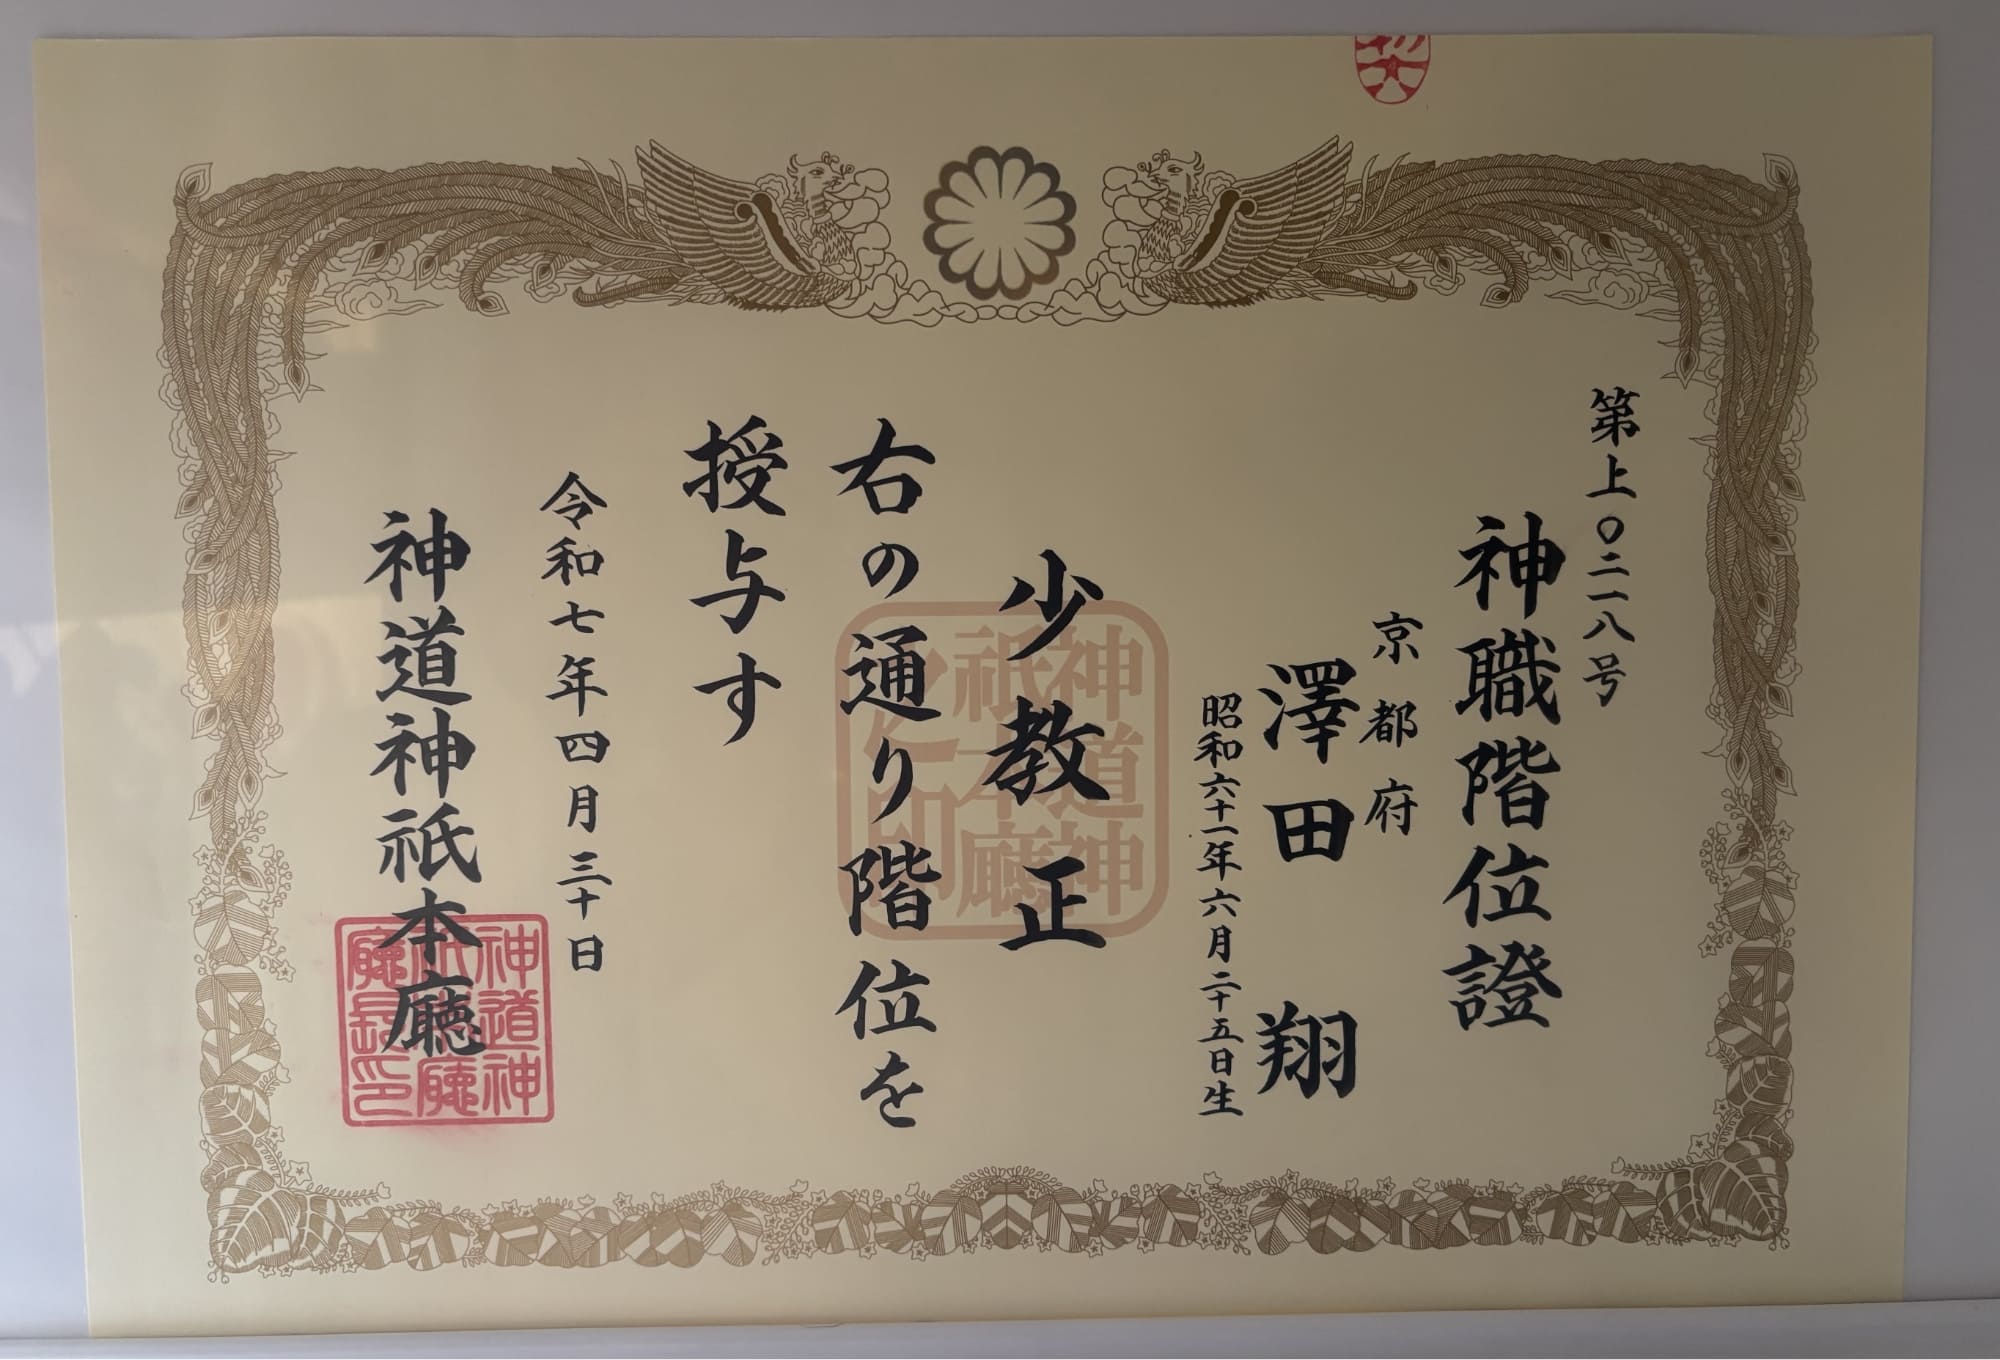 第上〇二一八号
神職階位證
京都府
澤田 翔
昭和六十一年六月二十五日生
少教正
右の通り階位を
授与す
令和七年四月三十日
神道神祇本廳
神道神
祇本廳
之印
神道神
祇本廳
廳長印